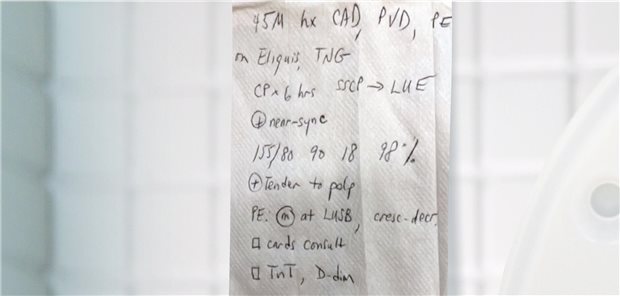 45M hx CAD, PVD, PE
on Eliquis, TNG
CP x 6 hrs SSCP → LUE
⊕ near-sync
155/80 90 18 98%
⊕ Tender to palp
PE: ⓜ at LUSB, cresc-decr.
☐ cards consult
☐ TnT, D-dim